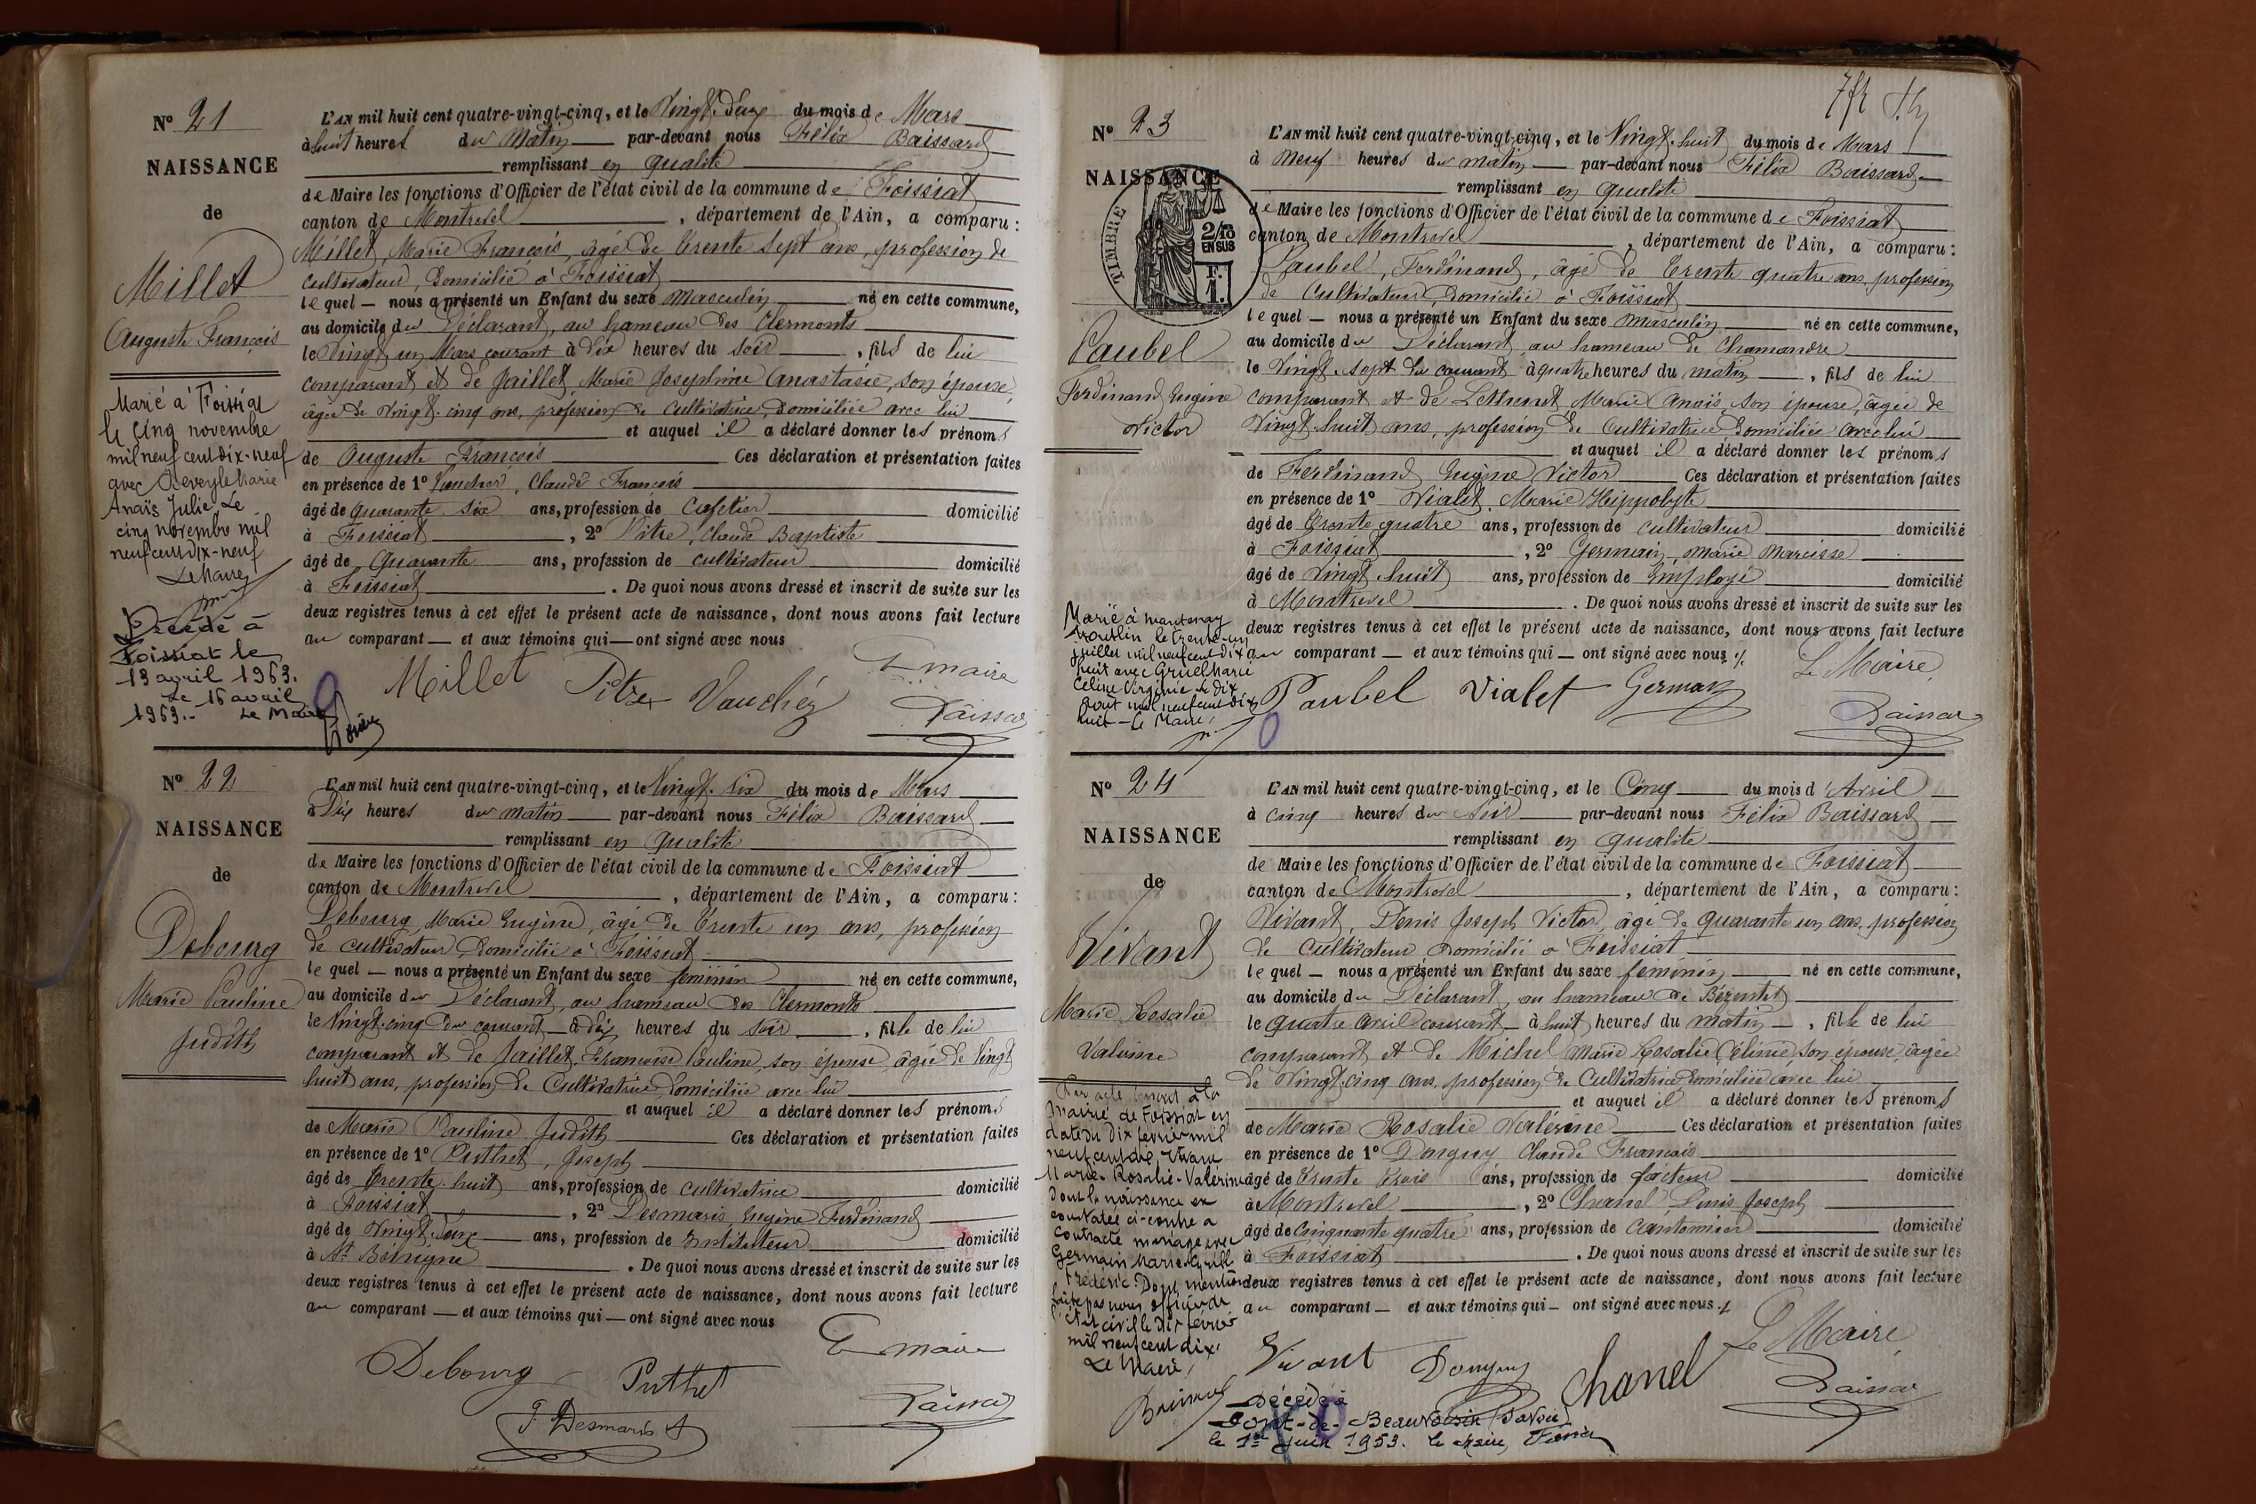 N° 21
NAISSANCE
de
Millet
Auguste François
Marié à Foissiat
le cinq novembre
mil neuf cent dix-neuf
avec Reveyle Marie
Anaïs Julie. Le
cinq novembre mil
neuf cent dix-neuf
Le Maire
Décédé à
Foissiat le
13 avril 1963.
Le 16 avril
1963.- Le Maire
L'AN mil huit cent quatre-vingt-cinq, et le Vingt-deux du mois de Mars
à huit heures du Matin par-devant nous Félix Baissard
remplissant en qualité
de Maire les fonctions d'Officier de l'état civil de la commune de Foissiat
canton de Montrevel, département de l'Ain, a comparu :
Millet, Marie François, âgé de trente sept ans, profession de
cultivateur, domicilié à Foissiat
lequel — nous a présenté un Enfant du sexe masculin né en cette commune,
au domicile du Déclarant, au hameau des Clermonts
le Vingt un Mars courant à dix heures du soir, fils de lui
comparant et de Jaillet, Marie Joséphine Anastasie, son épouse,
âgée de vingt-cinq ans, profession de cultivatrice, domiciliée avec lui
et auquel il a déclaré donner les prénoms
de Auguste François Ces déclaration et présentation faites
en présence de 1° Vaucher, Claude François
âgé de quarante six ans, profession de Cafetier domicilié
à Foissiat, 2° Pitre, Claude Baptiste
âgé de Quarante ans, profession de cultivateur domicilié
à Foissiat. De quoi nous avons dressé et inscrit de suite sur les
deux registres tenus à cet effet le présent acte de naissance, dont nous avons fait lecture
au comparant — et aux témoins qui — ont signé avec nous
Millet Pitre Vaucher Le maire
Baissard
N° 22
NAISSANCE
de
Debourg
Marie Pauline
Judith
L'AN mil huit cent quatre-vingt-cinq, et le Vingt-six du mois de Mars
à Dix heures du matin par-devant nous Félix Baissard
remplissant en qualité
de Maire les fonctions d'Officier de l'état civil de la commune de Foissiat
canton de Montrevel, département de l'Ain, a comparu :
Debourg, Marie Eugène, âgé de trente un ans, profession
de cultivateur, domicilié à Foissiat
lequel — nous a présenté un Enfant du sexe féminin né en cette commune,
au domicile du Déclarant, au hameau des Clermonts
le Vingt-cinq du courant à dix heures du soir, fille de lui
comparant et de Jaillet, Françoise Pauline, son épouse, âgée de vingt
huit ans, profession de Cultivatrice, domiciliée avec lui
et auquel il a déclaré donner les prénoms
de Marie Pauline Judith Ces déclaration et présentation faites
en présence de 1° Puthet, Joseph
âgé de trente-huit ans, profession de cultivatrice domicilié
à Foissiat, 2° Desmaris, Eugène Ferdinand
âgé de Vingt-deux ans, profession de Instituteur domicilié
à St Bénigne. De quoi nous avons dressé et inscrit de suite sur les
deux registres tenus à cet effet le présent acte de naissance, dont nous avons fait lecture
au comparant — et aux témoins qui — ont signé avec nous
Debourg Puthet Le maire
Desmaris Baissard
N° 23
NAISSANCE
de
TIMBRE
2/10
EN SUS
F.
1.
Paubel
Ferdinand Eugène
Victor
Marié à Mantenay
Montlin le trente-un
juillet mil neuf cent dix
huit avec Gruel Marie
Céline Virginie le dix
août mil neuf cent dix
huit — Le Maire,
L'AN mil huit cent quatre-vingt-cinq, et le Vingt-huit du mois de Mars
à Neuf heures du matin par-devant nous Félix Baissard
remplissant en qualité
de Maire les fonctions d'Officier de l'état civil de la commune de Foissiat
canton de Montrevel, département de l'Ain, a comparu :
Paubel, Ferdinand, âgé de trente quatre ans, profession
de Cultivateur, domicilié à Foissiat
lequel — nous a présenté un Enfant du sexe masculin né en cette commune,
au domicile du Déclarant, au hameau de Chamandre
le Vingt-sept du courant à quatre heures du matin, fils de lui
comparant et de Lethenet, Marie Anaïs, son épouse, âgée de
Vingt-huit ans, profession de Cultivatrice domiciliée avec lui
et auquel il a déclaré donner les prénoms
de Ferdinand Eugène Victor Ces déclaration et présentation faites
en présence de 1° Vialet, Marie Hippolyte
âgé de trente quatre ans, profession de cultivateur domicilié
à Foissiat, 2° Germain Marie Narcisse
âgé de Vingt-huit ans, profession de Employé domicilié
à Montrevel. De quoi nous avons dressé et inscrit de suite sur les
deux registres tenus à cet effet le présent acte de naissance, dont nous avons fait lecture
au comparant — et aux témoins qui — ont signé avec nous
Paubel Vialet Germain Le Maire
Baissard
N° 24
NAISSANCE
de
Vivant
Marie Rosalie
Valérine
Par acte inscrit à la
mairie de Foissiat en
date du dix février mil
neuf cent dix, Vivant
Marie-Rosalie-Valérine
dont la naissance est
constatée ci-contre a
contracté mariage avec
Germain Marie
Frédéric. Dont mention
faite par nous officier de
l'état civil le dix février
mil neuf cent dix.
Le Maire,
L'AN mil huit cent quatre-vingt-cinq, et le Cinq du mois d'Avril
à cinq heures du soir par-devant nous Félix Baissard
remplissant en qualité
de Maire les fonctions d'Officier de l'état civil de la commune de Foissiat
canton de Montrevel, département de l'Ain, a comparu :
Vivant, Denis Joseph Victor, âgé de quarante un ans, profession
de Cultivateur domicilié à Foissiat
lequel — nous a présenté un Enfant du sexe féminin né en cette commune,
au domicile du Déclarant, au hameau de Bézentet
le quatre avril courant à huit heures du matin, fille de lui
comparant et de Michel Marie Rosalie Céline, son épouse, âgée
de Vingt-cinq ans, profession de Cultivatrice domiciliée avec lui
et auquel il a déclaré donner les prénoms
de Marie Rosalie Valérine Ces déclaration et présentation faites
en présence de 1° Donguy Claude François
âgé de trente trois ans, profession de facteur domicilié
à Montrevel, 2° Chanel Denis Joseph
âgé de Cinquante quatre ans, profession de Cantonnier domicilié
à Foissiat. De quoi nous avons dressé et inscrit de suite sur les
deux registres tenus à cet effet le présent acte de naissance, dont nous avons fait lecture
au comparant — et aux témoins qui — ont signé avec nous
Vivant Donguy Chanel Le Maire
Baissard
Décédée à
Pont-de-Beauvoisin (Savoie)
le 1er juin 1953. Le Maire,